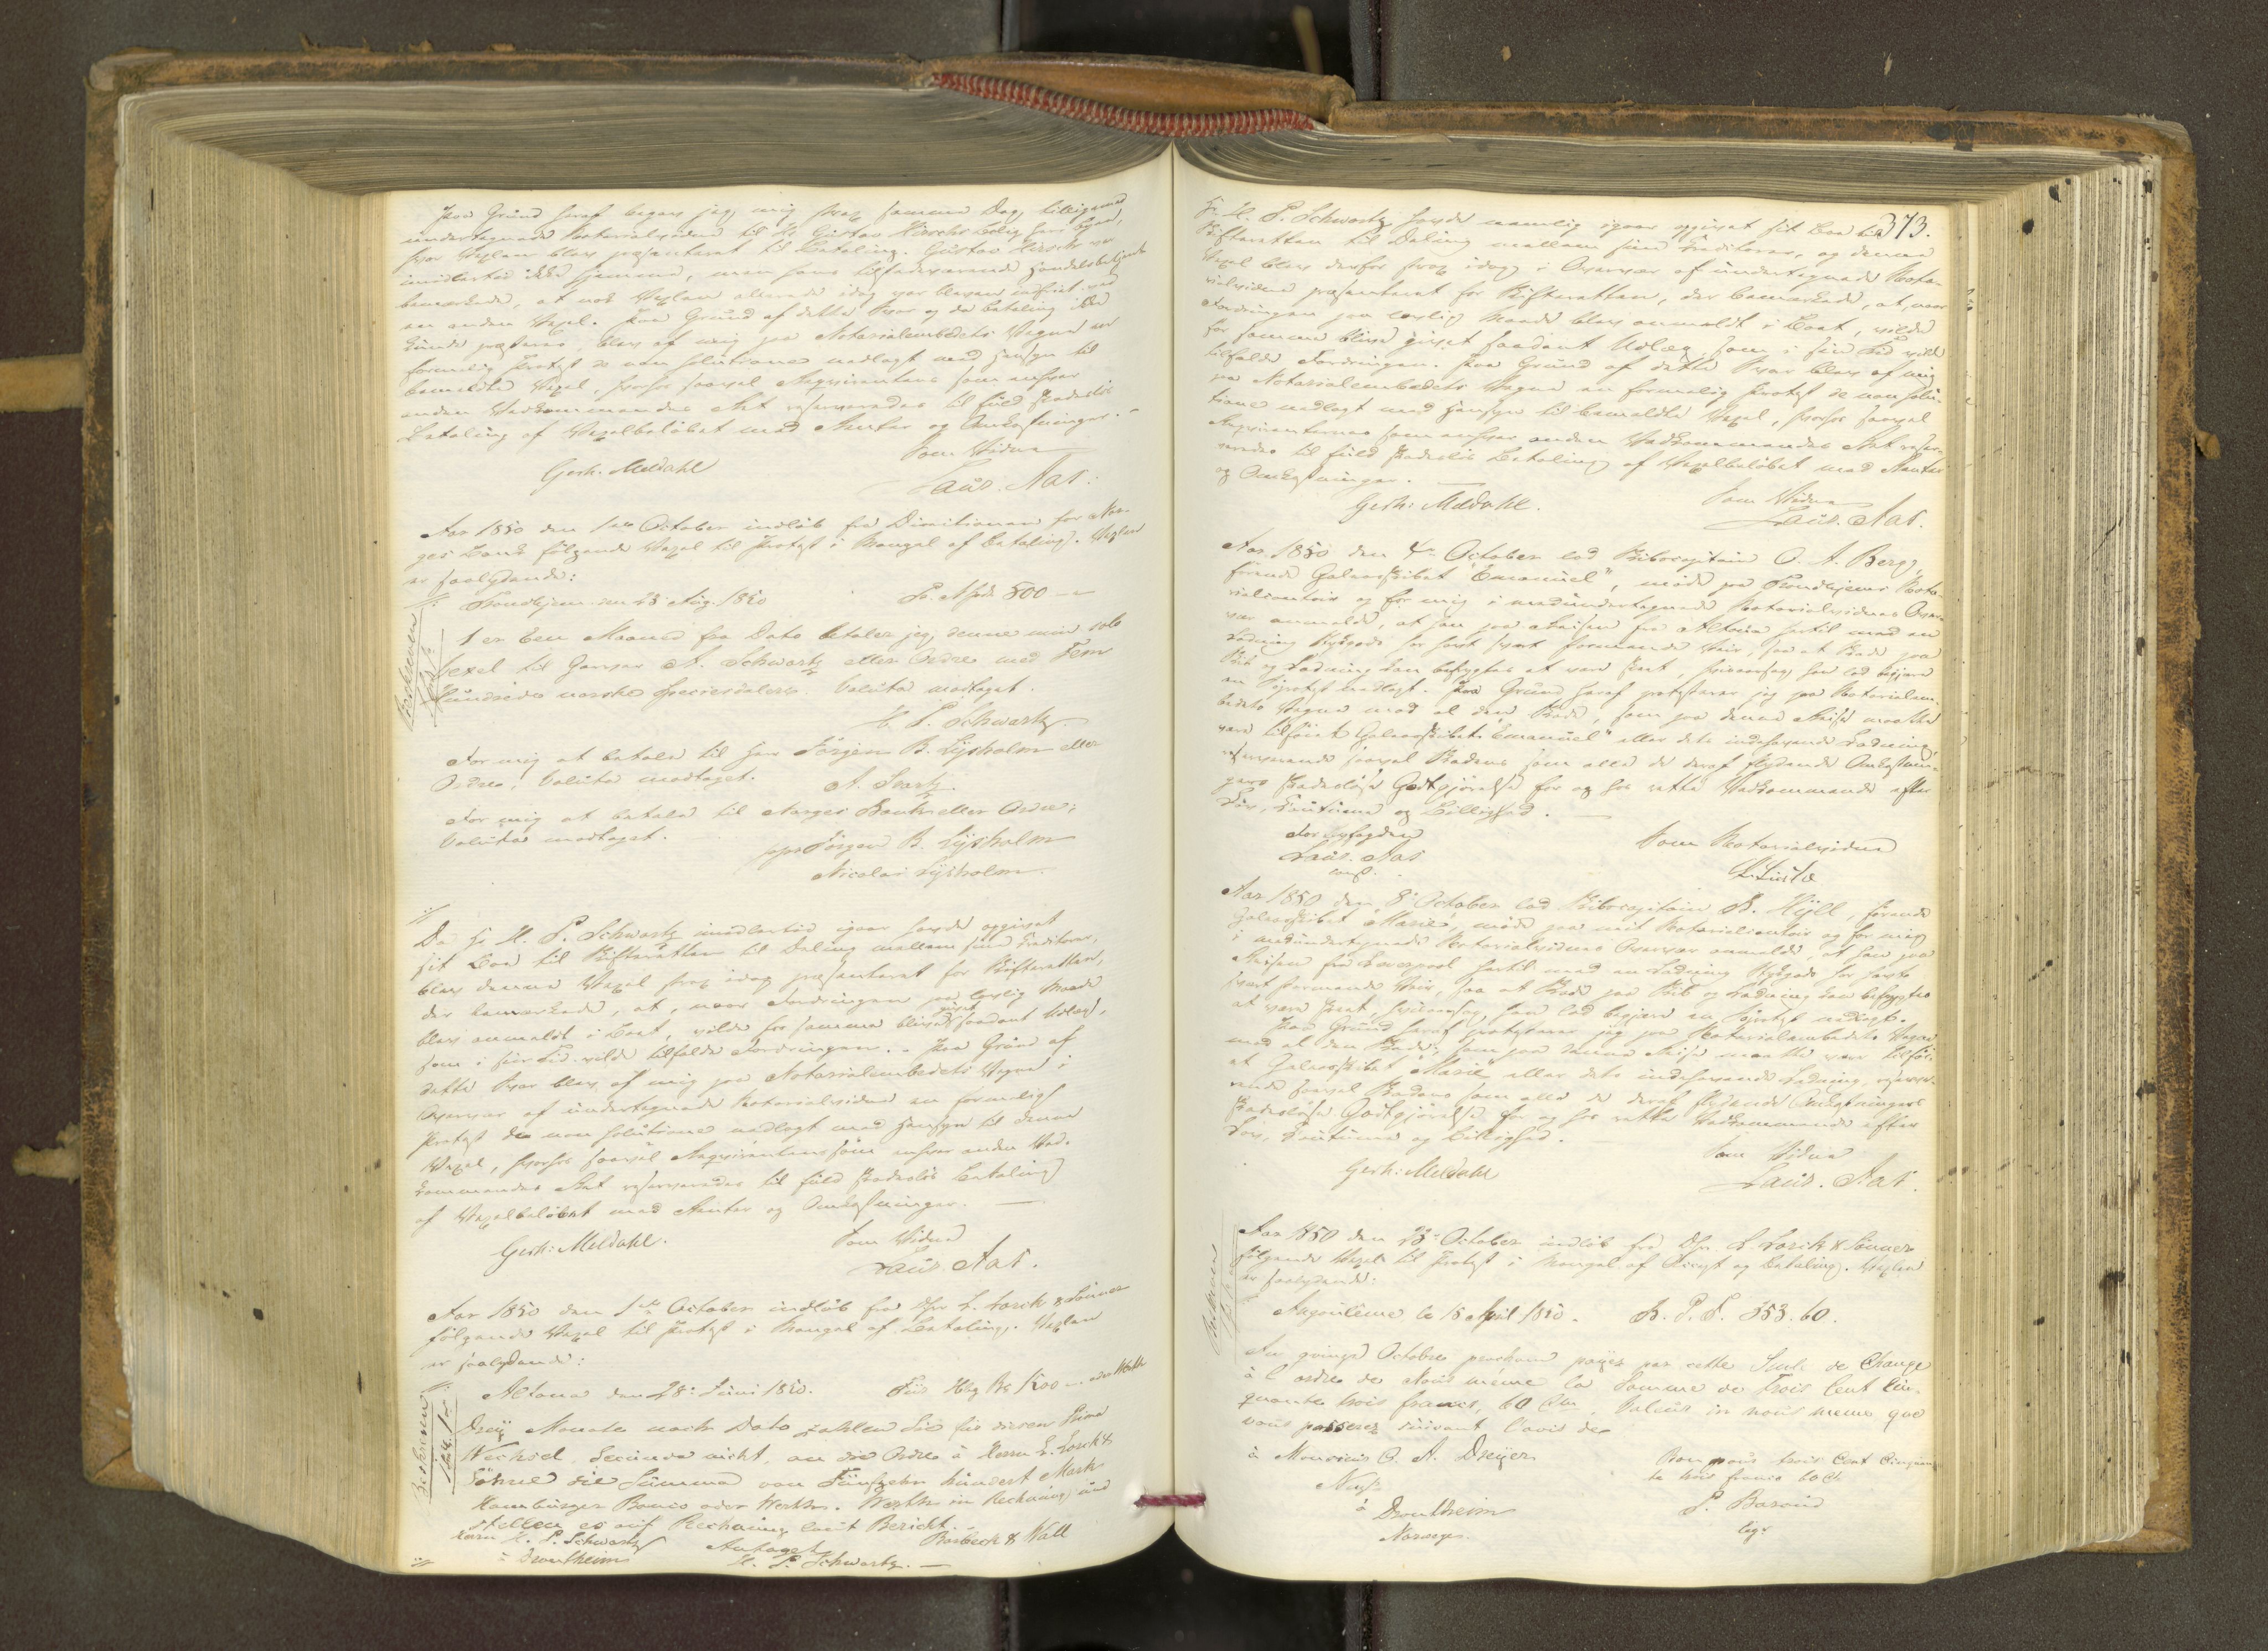 Paa Grund heraf begav jeg mig strax samme Dag tilligemed
undertegnede Notarialvidne til H. Gustav Hirschs Bolig her i Byen,
hvor Vexlen blev præsenteret til Betaling. Gustav Hirsch var
imidlertid ikke hjemme, men hans tilstedeværende Handelsbetjent
bemærkede, at nok Vexlen allerede idag var bleven indfriet ved
en anden Vexel. Paa Grund af dette Svar og da Betaling ikke
kunde præsteres, blev af mig paa Notarialembedets Vegne en
formelig Protest de non solutione nedlagt med Hensyn til
bemeldte Vexel, hvorhos saavel Reqvirentens som enhver
anden Vedkommendes Ret reserveredes til fuld skadeslös
Betaling af Vexelbelöbet med Renter og Omkostninger. -
Som Vidne
Gerh. Meldahl
Laur. Aas.
Aar 1850 den 1ste October indlöb fra Directionen for Nor-
ges Bank fölgende Vexel til Protest i Mangel af Betaling. Vexlen
er saalydende:
Trondhjem den 28 Aug. 1850 Pr. N Spd. 500 —
1 er Een Maaned fra Dato betaler jeg denne min solo
Vexel til Herr A. Schwartz eller Ordre med Fem
Hundrede norske Speciesdaler. Valuta modtaget.
H. P. Schwartz.
For mig at betale til Herr Jörgen B. Lysholm eller
Ordre, Valuta modtaget.
A. Svartz.
For mig at betale til Norges Bank eller Ordre;
Valuta modtaget.
Jörgen B. Lysholm
Nicolai Lysholm.
Da Hr H. P. Schwartz imidlertid igaar havde opgivet
sit Bo til Skifteretten til Deling mellem sine Creditorer,
blev denne Vexel strax idag præsenteret for Skifteretten,
der bemærkede, at, naar Fordringen paa lovlig Maade
blev anmeldt i Boet, vilde for samme blive givet saadant Udlæg,
som i sin Tid vilde tilfalde Fordringen. - Paa Grund af
dette Svar blev af mig paa Notarialembedets Vegne i
Overvær af undertegnede Notarialvidne en formelig
Protest de non solutione nedlagt med Hensyn til denne
Vexel, hvorhos saavel Reqvirentens som enhver anden Ved-
kommendes Ret reserveredes til fuld skadeslös Betaling
af Vexelbelöbet med Renter og Omkostninger. —
Som Vidne
Gerh: Meldahl.
Laur. Aas.
Aar 1850 den 1ste October indlöb fra DHr L. Lorck & Sönner
fölgende Vexel til Protest i Mangel af Betaling. Vexlen
er saalydende:
Altona den 28: Juni 1850. Für Hbg Bco 1500 —
Drey Monate nach Dato zahlen Sie für diesen Prima
Wechsel, Secunda nicht, an die Ordre à Herrn L. Lorck &
Söhne die Summa von Fünfzehn hundert Mark
Hamburger Banco oder Werth. Werth in Rechnung und
stellen es auf Rechnung laut Bericht.
Herrn H. P. Schwartz
à Drontheim
H. P. Schwartz. —
& Wall
373.
Hr H. P. Schwartz havde nemlig igaar opgivet sit Bo til
Skifteretten til Deling mellem sine Creditorer, og denne
Vexel blev derfor strax idag i Overvær af undertegnede Nota-
rialvidne præsenteret for Skifteretten, der bemærkede, at, naar
Fordringen paa lovlig Maade blev anmeldt i Boet, vilde
for samme blive givet saadant Udlæg som i sin Tid vilde
tilfalde Fordringen. Paa Grund af dette Svar blev af mig
paa Notarialembedets Vegne en formelig Protest de non solu-
tione nedlagt med Hensyn til bemeldte Vexel, hvorhos saavel
Reqvirenternes som enhver anden Vedkommendes Ret reser-
veredes til fuld skadeslös Betaling af Vexelbelöbet med Renter
og Omkostninger. —
Som Vidne
Gerh: Meldahl.
Laur. Aas.
Aar 1850 den 4de October lod Skibscapitain O. A. Berg,
förende Galeasskibet "Emanuel", möde paa Trondhjems Nota-
rialcontoir og for mig i medundertegnede Notarialvidnes Over-
vær anmelde, at han paa Reisen fra Altona hertil med en
Ladning Stykgods har havt svært stormende Veir, saa at Skade paa
Skib og Ladning kan befrygtes at være skeet, hvisaarsag han lod begjære
en Söprotest nedlagt. Paa Grund heraf protesterer jeg paa Notarialem-
bedets Vegne mod al den Skade, som paa denne Reise maatte
være tilföiet Galeasskibet "Emanuel" eller dets indehavende Ladning,
reserverende saavel Skadens som alle de deraf flydende Omkostnin-
gers skadeslöse Godtgjörelse for og hos rette Vedkommende efter
Lov, Coutume og Billighed. —
Som Notarialvidne
Laur. Aas
const.
Aar 1850 den 8de October lod Skibscapitain B. Hyll, förende
Galeasskibet "Marie", möde paa mit Notarialcontoir og for mig
i medundertegnede Notarialvidnes Overvær anmelde, at han paa
Reisen fra Liverpool hertil med en Ladning Stykgods har havt
svært stormende Veir, saa at Skade paa Skib og Ladning kan befrygtes
at være skeet, hvisaarsag han lod begjære en Söprotest nedlagt.
Paa Grund heraf protesterer jeg paa Notarialembedets Vegne
mod al den Skade, som paa denne Reise maatte være tilföi-
et Galeasskibet "Marie" eller dets indehavende Ladning, reserve-
rende saavel Skadens som alle de deraf flydende Omkostningers
skadeslöse Godtgjörelse for og hos rette Vedkommende efter
Lov, Coutume og Billighed. —
Som Vidne
Gerh: Meldahl
Laur. Aas.
Aar 1850 den 23de October indlöb fra DHr L. Lorck & Sönner
fölgende Vexel til Protest i Mangel af Accept og Betaling. Vexlen
er saalydende:
Angoulême le 15 April 1850. B. P. F. 353. 60.
Au quinze Octobre prochain payez par cette Seule de Change
à l'ordre de Nous même la Somme de Trois Cent Cin-
quante trois francs, 60 Cm. Valeur in nous meme que
vous passerez suivant l'avis de
à Monsieur O. A. Dreyer
à Drontheim
Norwegen.
Bon pour trois Cent Cinquan-
te trois francs 60 C.